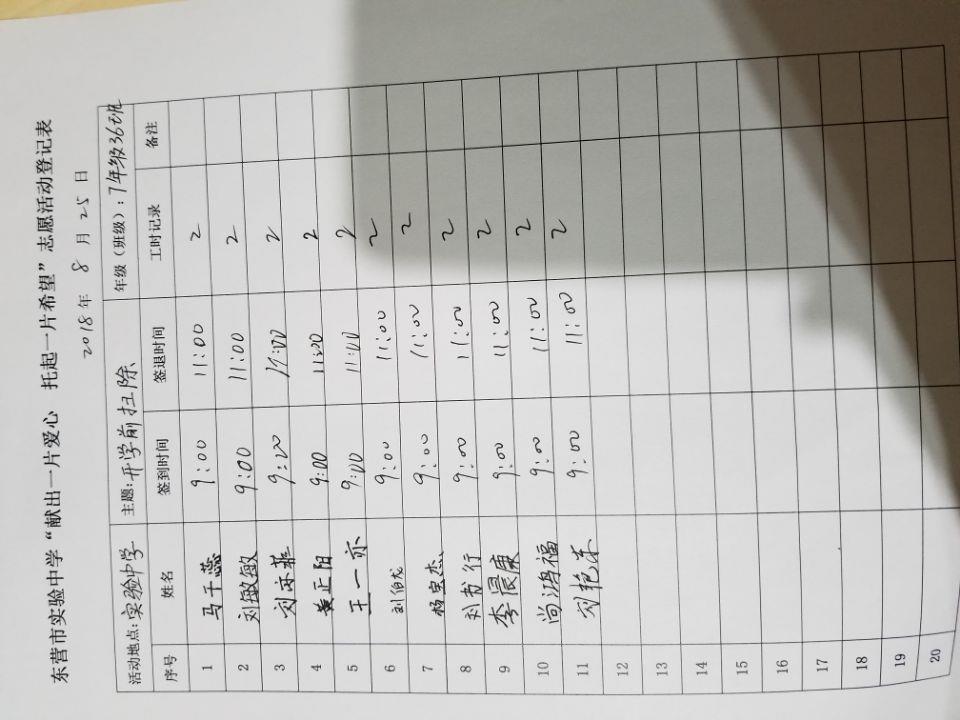 东营市实验中学“献出一片爱心 托起一片希望”志愿活动登记表
2018年 8 月 25 日
活动地点：实验中学 主题：开学前扫除 年级（班级）：7年级36班
序号 姓名 签到时间 签退时间 工时记录 备注
1 马千蕊 9:00 11:00 2
2 刘敏敏 9:00 11:00 2
3 刘亦菲 9:00 11:00 2
4 黄正阳 9:00 11:00 2
5 王一亦 9:00 11:00 2
6 刘伯龙 9:00 11:00 2
7 杨宝杰 9:00 11:00 2
8 刘书行 9:00 11:00 2
9 李晨康 9:00 11:00 2
10 尚鸿福 9:00 11:00 2
11 刘艳东 9:00 11:00 2
12
13
14
15
16
17
18
19
20